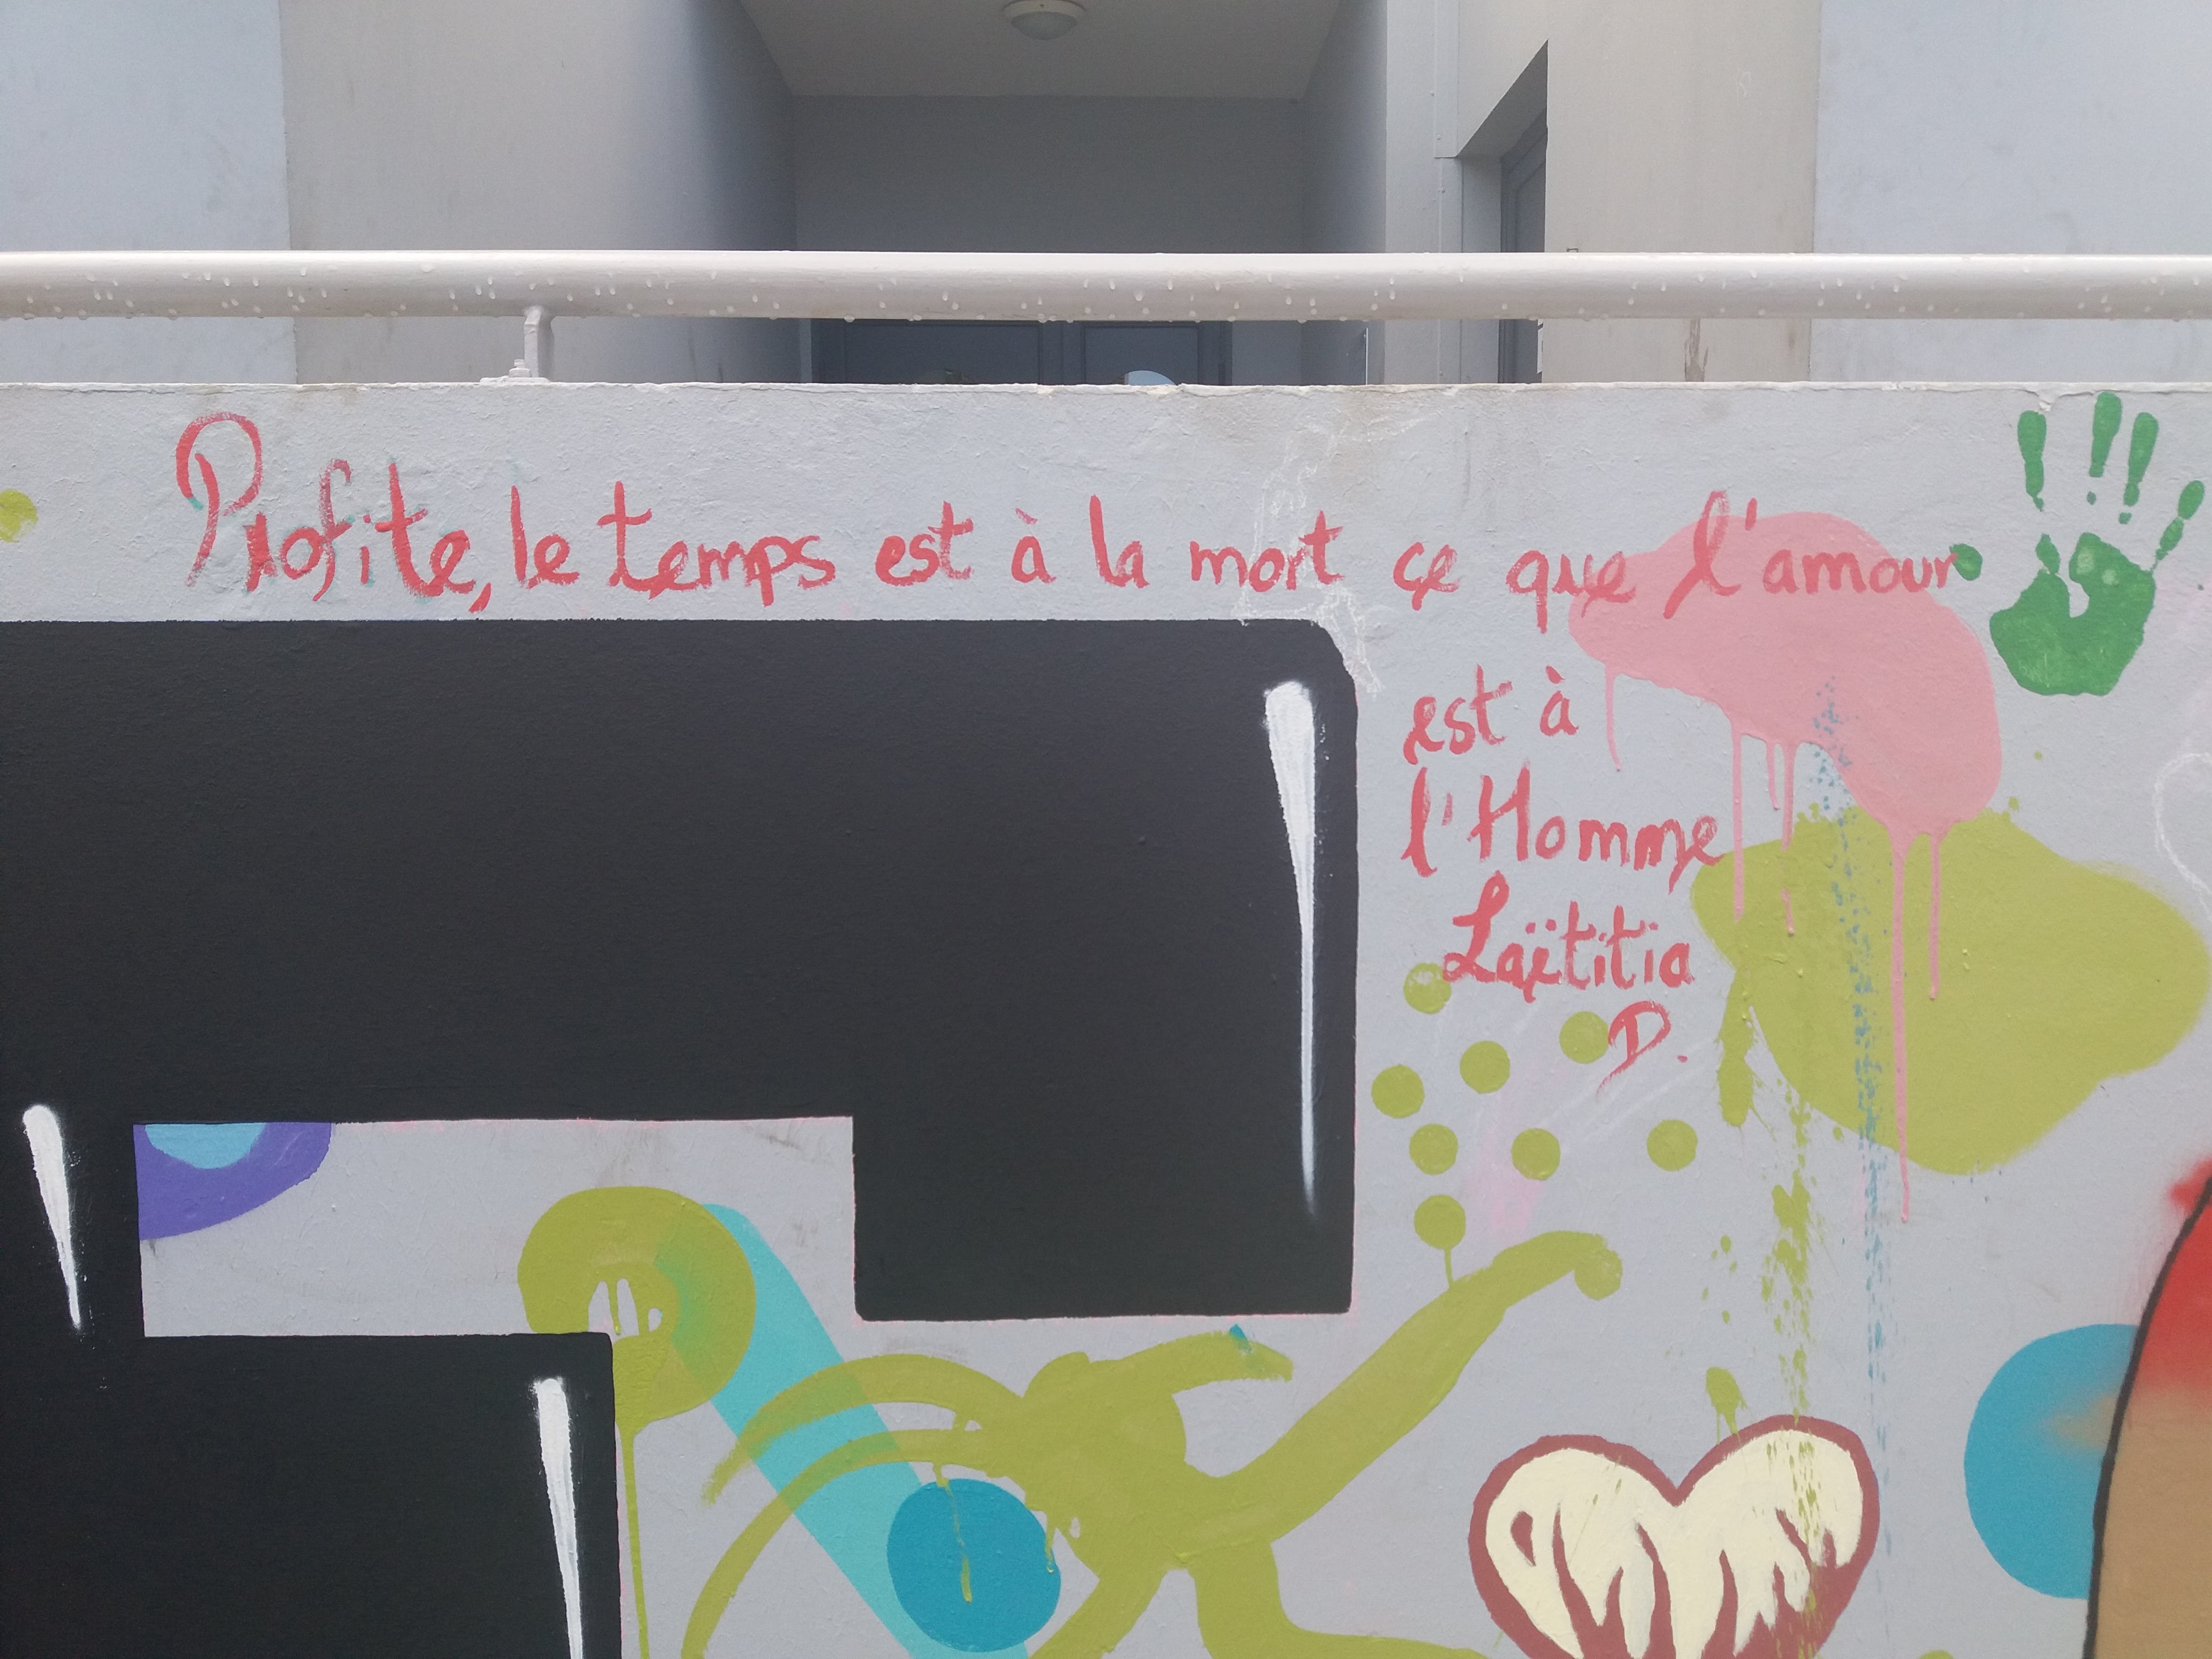 Profite, le temps est à la mort ce que l'amour
est à
l'Homme
Laëtitia
D.